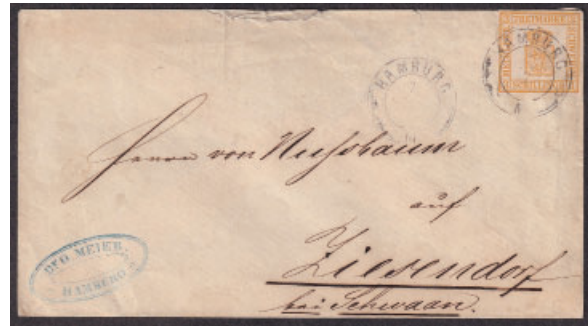 HAMBURG
HAMBURG
Herrn von Nussbaum
auf
Ziesendorf
bei Schwaan.
GEO MEIER
HAMBURG